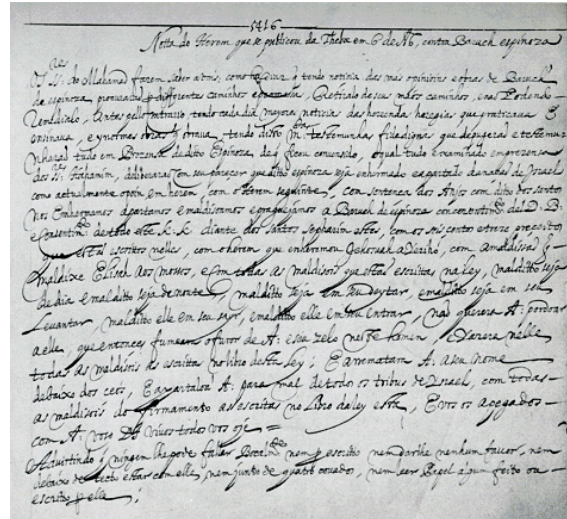 5416
Notta do Herem que se publicou da Theba em 6 de Ab, contra Baruch espinoza
Os SSres do Mahamad fazem saber a vms, como tendo noticia das mas opinioins e obras de Baruch
de espinoza, procurarão p differentes caminhos e promessas, Retiralo de seus maos caminhos, e não Podendo
Remedialo, Antes pelo contrario, tendo cada dia, mayores noticias das horrendas heregias que praticava e
ensinava, e ynormes obras q obrava, tendo disto mtas testemunhas fidedignas que depugerão e testemun
nharão tudo em Prezensa de ditto Espinoza, de q ficou convensido, o qual tudo examinado em prezensa
dos SSres Hahamim, deliberarão com seu parecer que ditto espinoza seja enhermado e apartado de nação de Israel
como actualmente o poin em herem, com o Herem seguinte, Com sentença dos Anjos, com ditto dos santos
nos Enhermamos, apartamos e maldisoamos e praguejamos a Baruch de espinoza, com consentimto del D. B.
e consentimto de todo este K. K. diante dos santos Sepharim estes, com os seis centos e treze preceitos
que estão escritos nelles, com o herem que enheremou Jehosuah a Yeriho, com a maldissão q
maldixe Elisah aos mossos, e com todas as maldisois que estão escrittas na ley, malditto seja
de dia e malditto seja de noute, malditto seja em seu deytar, e malditto seja em seu
Levantar, malditto elle em seu sayr, e malditto elle em seu entrar, não quererá A: perdoar
a elle, que entonces fumeará o furor de A: e seu zelo neste homem, e yazerá nelle
todas as maldisois as escrittas no libro desta ley; E arrematará A: a seu nome
debaixo dos ceos, E apartaloa A: para mal de todos os tribus de Ysrael, com todas
as maldisois do firmamento as escritas no libro da ley esta, E vos os apegados
com A: voso D. vivos todos vos oje =
Advirtindo q ningem lhe pode fallar Bocalmte nem p escritto nem darlhe nenhum favor, nem
debaixo de tecto estar com elle, nem junto de quatro covados, nem leer Papel algum feito ou
escritto p elle ;